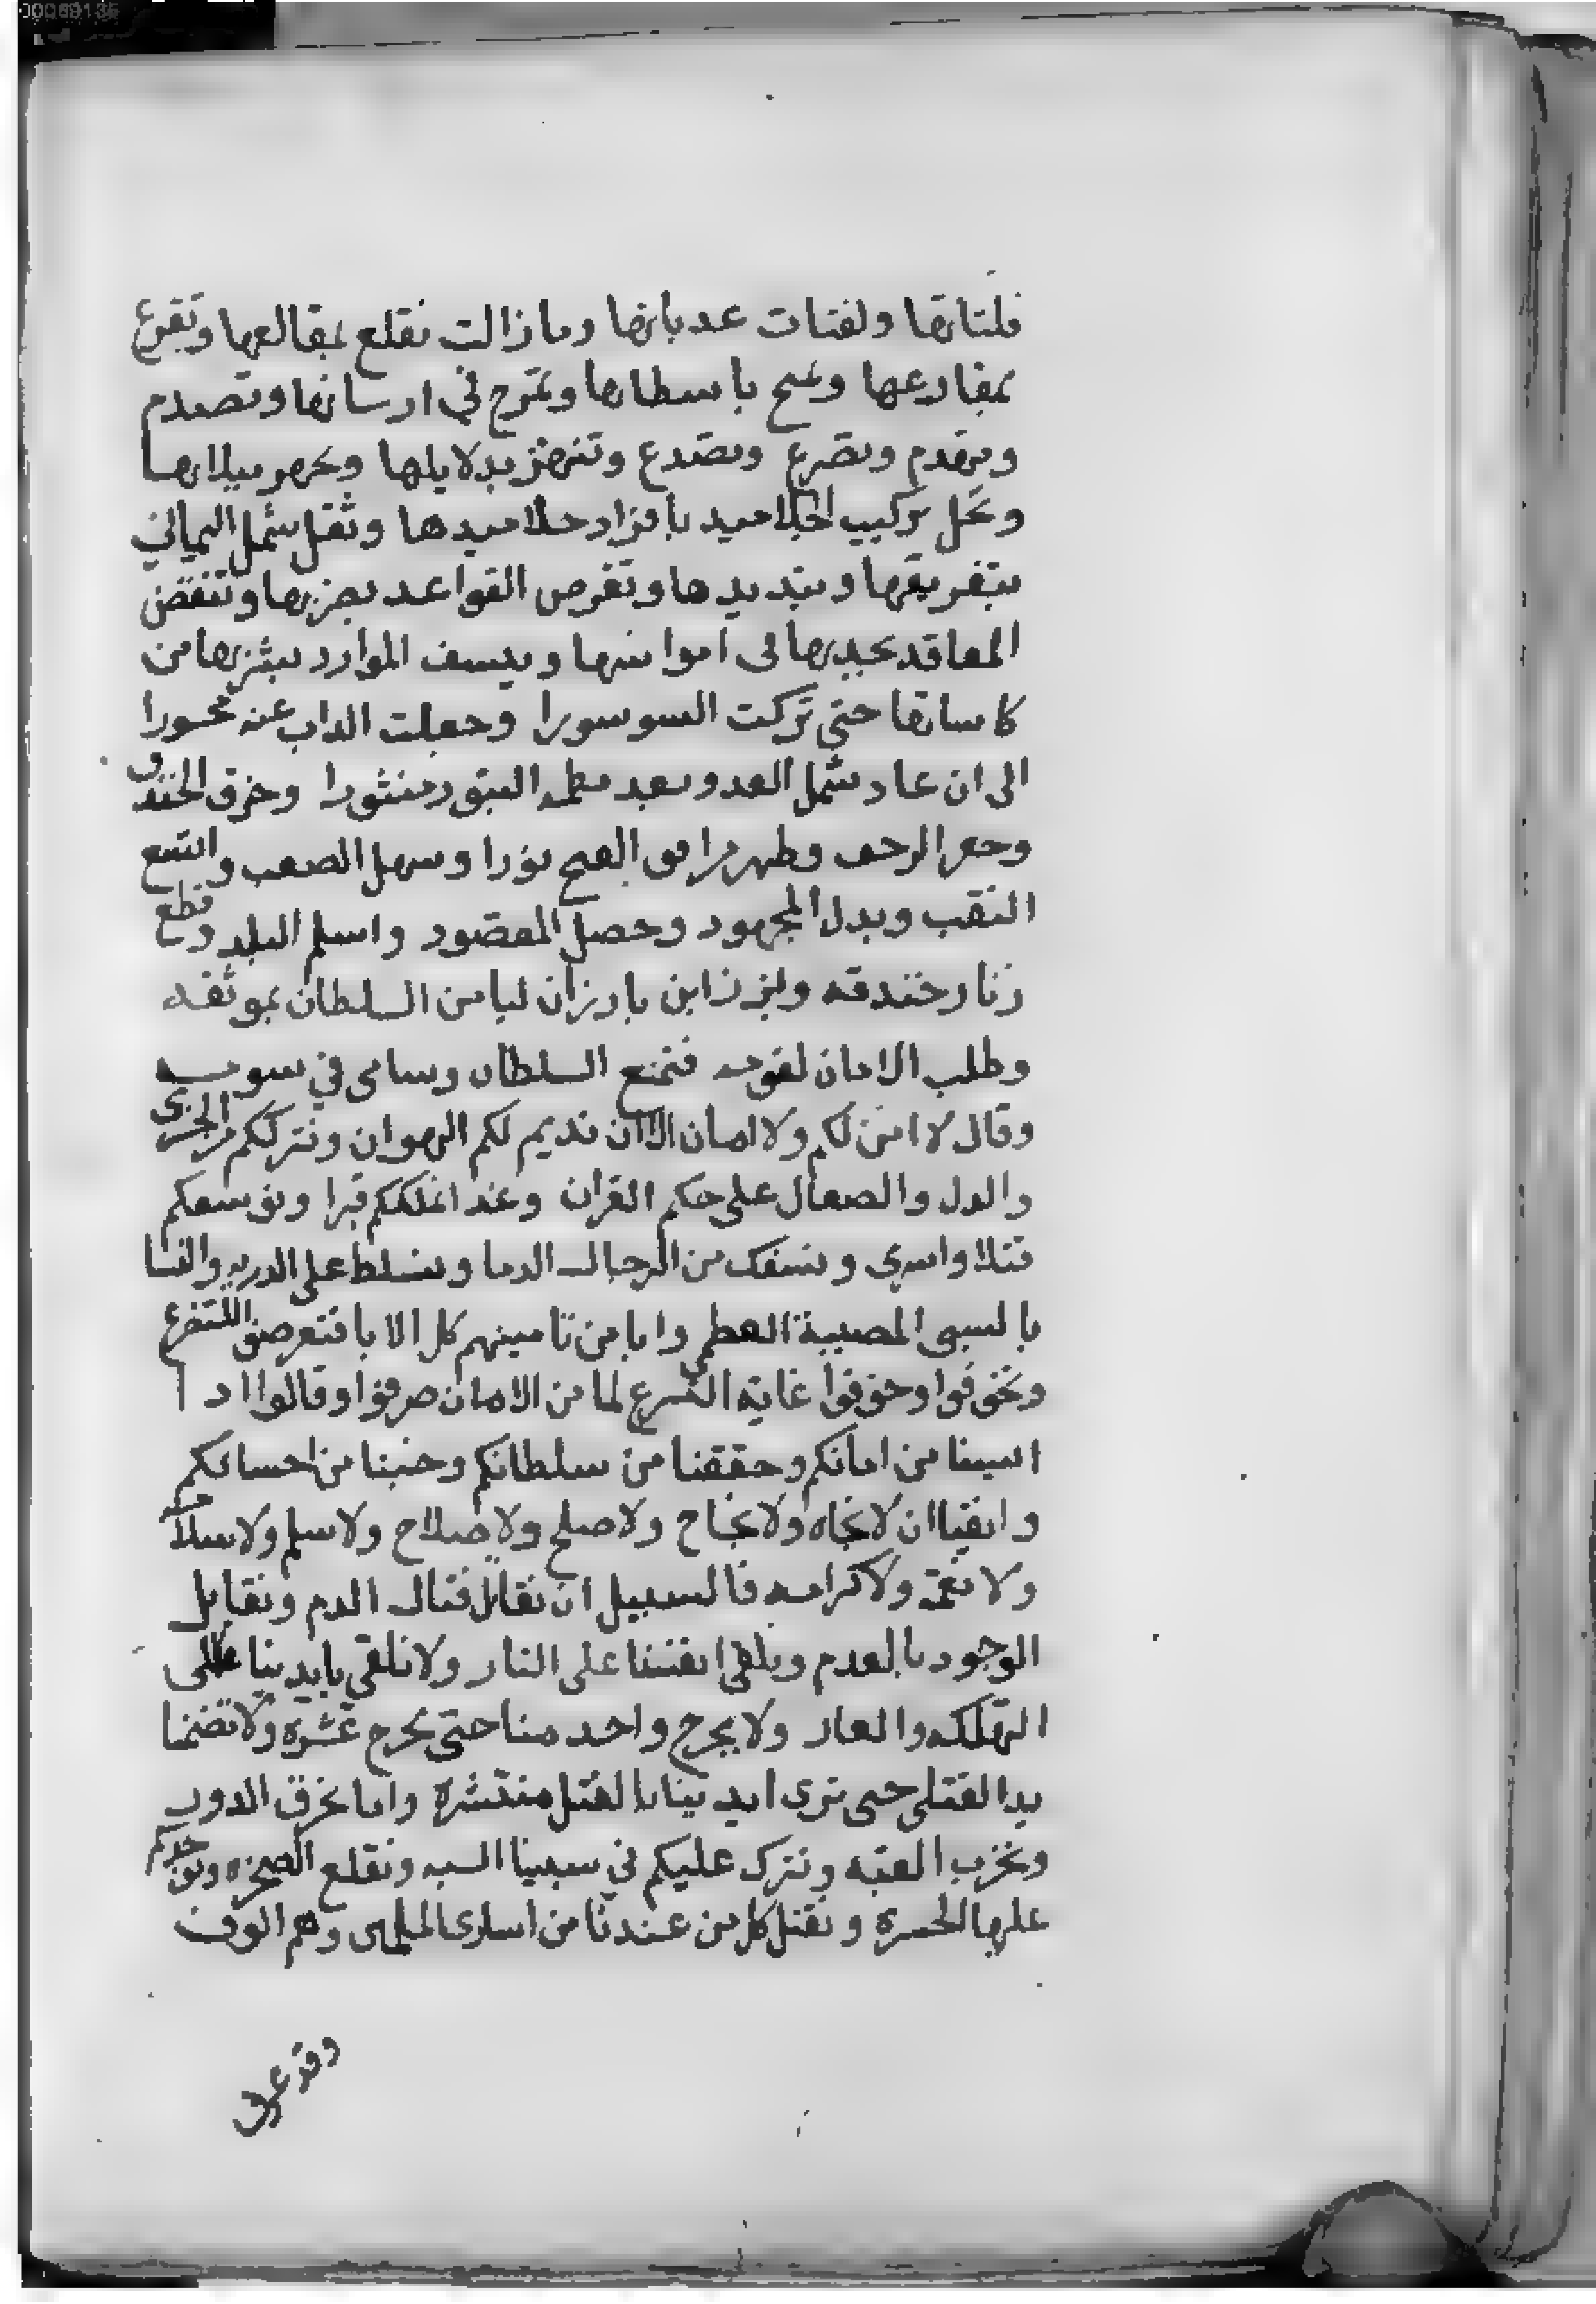 فلتاتها ولفتات عدباتها وما زالت تقلع بمقالعها وتقرع
بمقارعها وتمتح باسطانها وتمرح في ارسانها وتصدم
وتهدم وتصرع وتصدع وتنهز بدلايلها وتجهر ببلاياها
وتحل تركيب الجلاميد بافراد جلاميدها وتفل شمل المباني
بتفريقها وتبديدها وتقرص القواعد بضربها وتنقض
المعاقد بجذبها في امراسها وينسف الموارد بشربها من
كاساتها حتى تركت السور سورا وجعلت الذاب عنه محسورا
الى ان عاد شمل العدو بعد نظمه المبتور منثورا وخرق الخندق
وحفر الزحف وظهر من افق الفتح نورا وسهل الصعب واتسع
النقب وبدل المجهود وحصل المقصود واسلم البلد وقطع
زنار خندقه وبرز ابن بارزان ليامن السلطان بموثقه
وطلب الامان لقومه فتمنع السلطان وسامى في سومه
وقال لا امن لكم ولا امان الا ان نديم لكم الهوان ونترككم من الخزى
والدل والصغار على حكم القران وغدا نملككم قسرا ونوسعكم
قتلا واسرى ونسفك من الرجال الدما ونسلط على الدريه والنسا
بالسبى المصيبة العظمى وابا من تامينهم كل الابا فتعرضوا للتضرع
وتخوفوا وخوفوا غاية التسرع لما من الامان صرفوا وقالوا اذا
ايسنا من امانكم وحققنا من سلطانكم وخبنا من احسانكم
وايقنا ان لا نجاه ولا نجاح ولا صلح ولا صلاح ولا سلم ولا سلامة
ولا نعمة ولا كرامه فالسبيل ان نقاتل قتال الدم ونقابل
الوجود بالعدم ونلقى انفسنا على النار ولا نلقى بايدينا على
التهلكه والعار ولا يجرح واحد منا حتى يجرح عشرة ولا تضمنا
يد القتلى حتى ترى ايدينا بالقتل منتشرة وانا نحرق الدور
ونخرب القبه ونترك عليكم في سبينا السبه ونقلع الصخره ونوجدكم
عليها الحسرة ونقتل كل من عندنا من اسارى المسلمين وهم الوف
وقد عرف